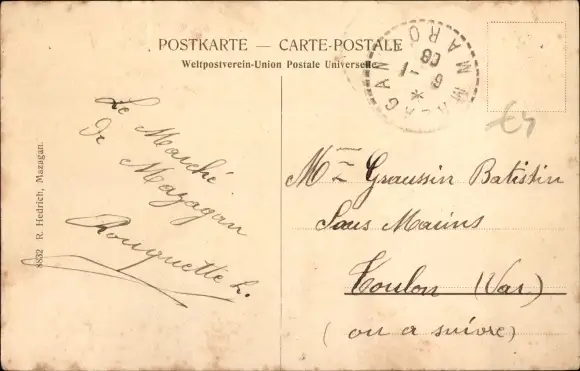 POSTKARTE — CARTE-POSTALE
Weltpostverein-Union Postale Universelle
MAZAGAN MAROC
6 -1 08
Le Marché
De Mazagan
Rouquette L.
8832 R. Hedrich, Mazagan.
Mme Graussin Batistin
Sous Marins
Toulon (Var)
(ou a suivre)